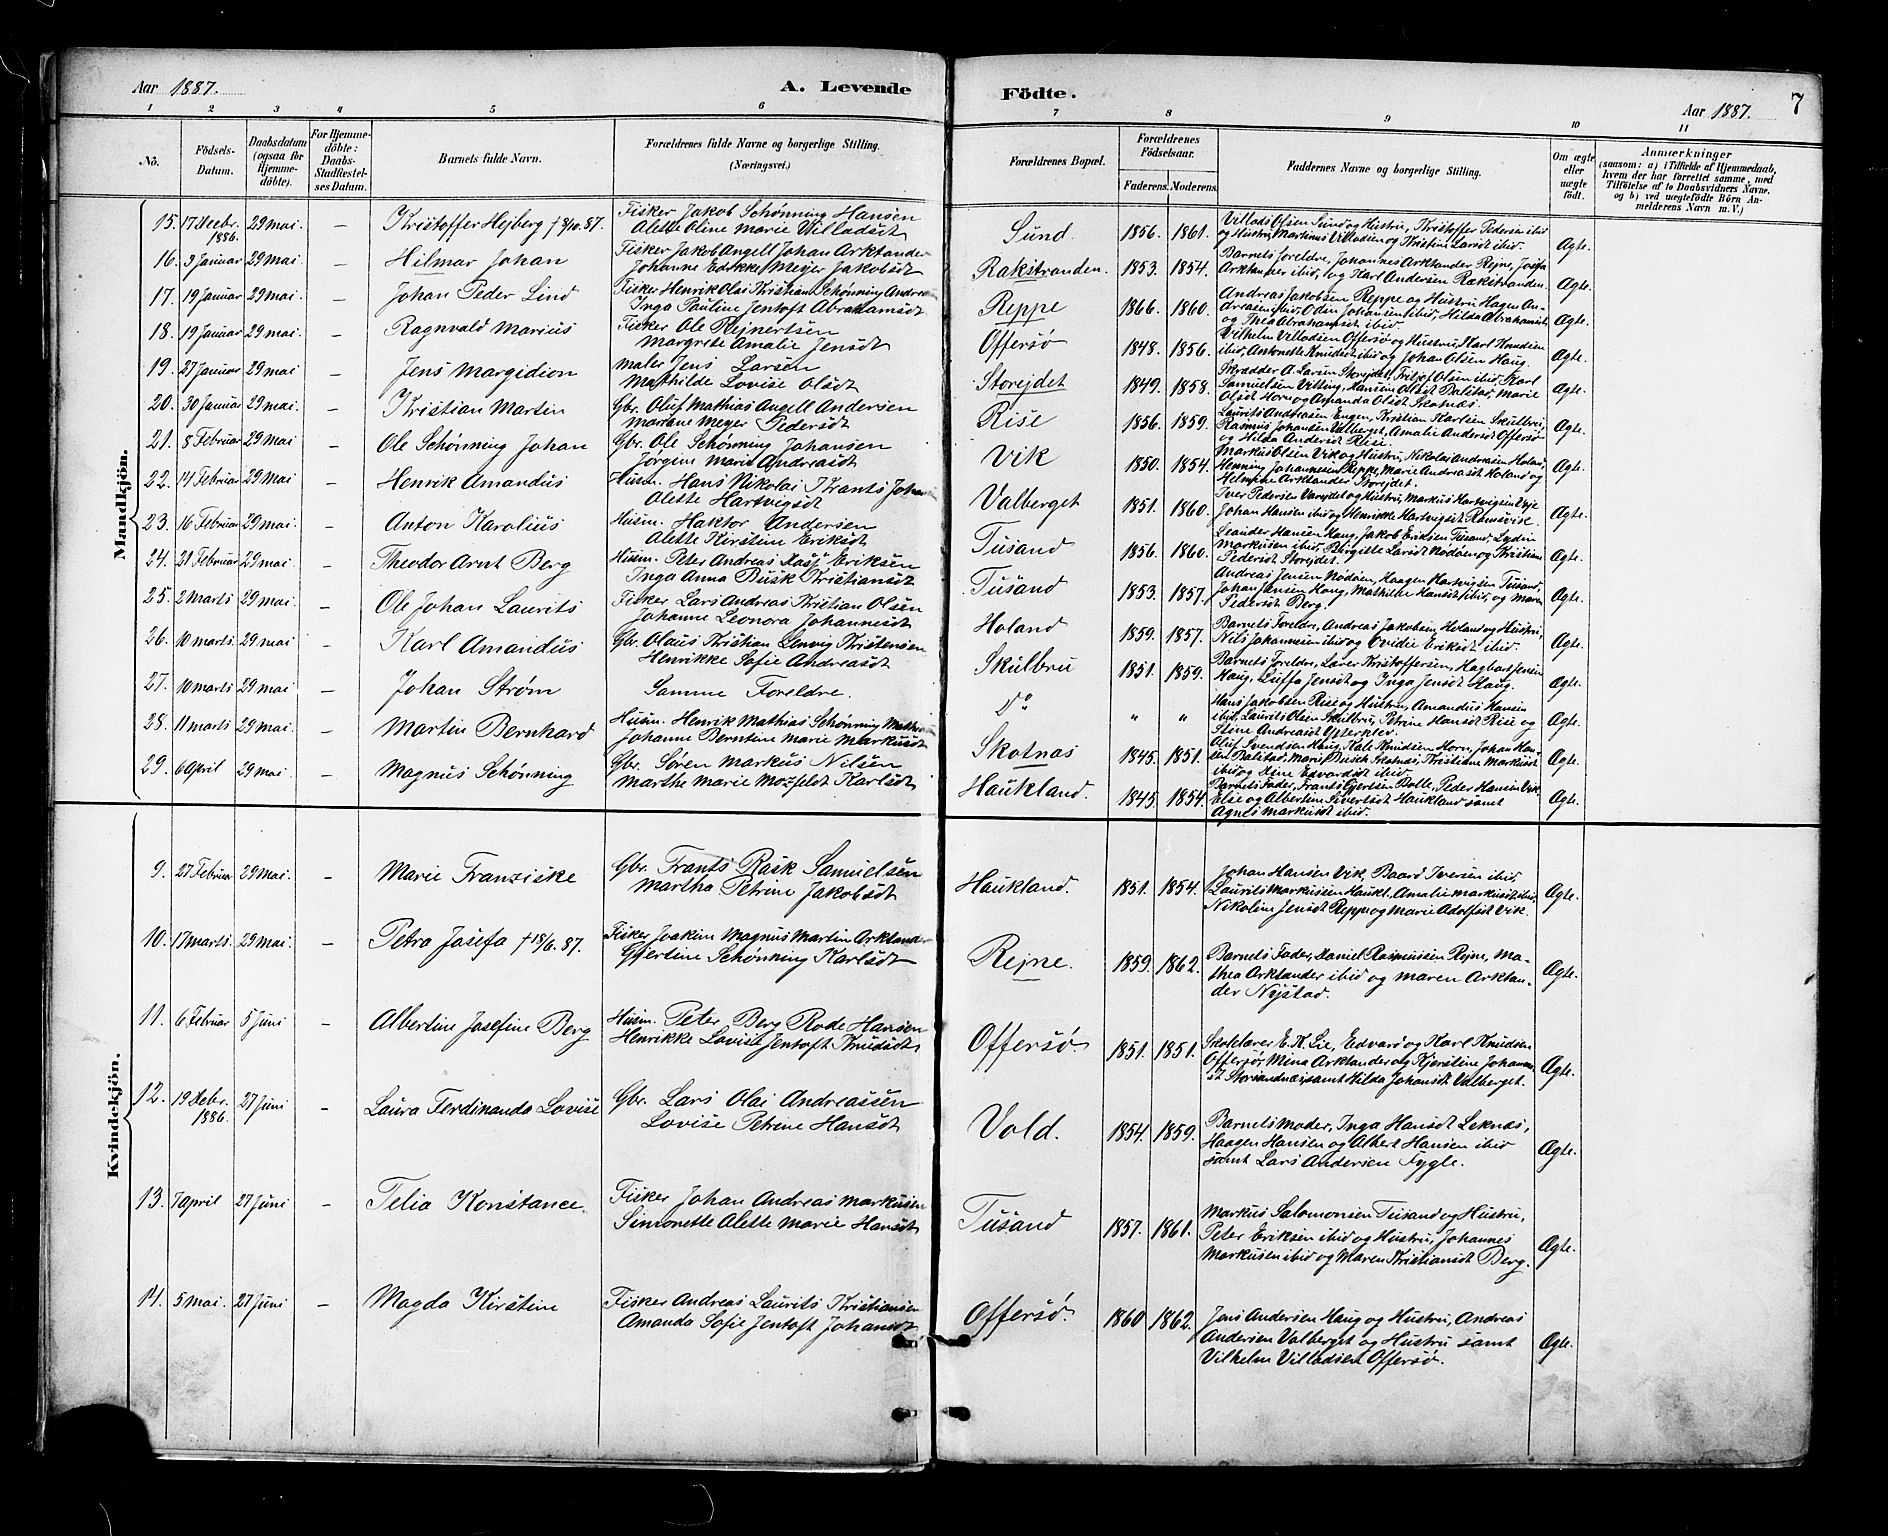 Aar 1887.
A. Levende
Födte.
Aar 1887.
7
1 2 3 4 5 6 7 8 9 10 11
No.
Födsels-Datum.
Daabsdatum (ogsaa for Hjemmedöbte).
For Hjemmedöbte: Daabs-Stadfæstelses Datum.
Barnets fulde Navn.
Forældrenes fulde Navne og borgerlige Stilling.
(Næringsvei.)
Forældrenes Bopæl.
Forældrenes Födselsaar.
Faderens. Moderens.
Faddernes Navne og borgerlige Stilling.
Om ægte eller uægte födt.
Anmærkninger
(saasom: a) i Tilfælde af Hjemmedaab, hvem der har forrettet samme, med Tilföielse af to Daabsvidners Navne. og b) ved uægtefödte Börn Anmelderens Navn m. V.)
Mandkjön.
15. 17 Decbr. 1886. 29 Mai. – Kristoffer Hejberg † 8/10. 87. Fisker Jakob Schønning Hansen
Alette Oline Marie Villadsdt Sund. 1856. 1861. Villads Olsen Sund og Hustru, Kristoffer Pedersen ibid
og Hustru, Markus Villadsen og Kristine Larsdt ibid. Ægte.
16. 3 Januar 29 Mai – Hilmar Johan Fisker Jakob Angell Johan Arktander
Johanne Edikke Meyer Jakobsdt Rakstranden. 1853. 1854. Barnets foreldre, Johannes Arktander Rejne, Josefa
Arktander ibid, og Karl Andersen Rakstranden. Ægte.
17. 19 Januar 29 mai – Johan Peder Lind Fisker Henrik Olai Kristian Schønning Andrea
Inga Pauline Jentoft Abrahamsdt Reppe 1866. 1860. Andreas Jakobsen Reppe og Hustru, Hagen An-
dreasen ibid, Oden Johansen ibid, Hilda Abrahamsdt
og Thea Abrahamsdt ibid. Ægte.
18. 19 Januar 29 mai. – Ragnvald Marius Fisker Ole Rejnertsen
Margrete Amalie Jensdt Offersø 1848. 1856. Vilhelm Villadsen Offersø og Hustru, Karl Knudsen
ibid, Antonette Knudsdt ibid og Johan Olsen Haug. Ægte.
19. 27 Januar 29 mai. – Jens Margidion Maler Jens Larsen
Mathilde Lovise Olsdt Storejdet 1849. 1858. Skrædder A. Larsen Storejdet, Fritjof Olsen ibid, Karl
Samuelsen Vitting, Hansine Olsdt Balstad, Marie
Olsdt Horn og Amanda Olsdt Skotnæs. Ægte.
20. 30 Januar 29 mai. – Kristian Martin Gbr. Oluf Mathias Angell Andersen
Mariane Meyer Pedersdt Rise 1856. 1859. Laurits Andreasen Engen, Kristian Karlsen Skulbru,
Rasmus Johansen Valberget, Amalie Andersdt Offersø
og Hilda Andersdt Rise. Ægte.
21. 8 Februar 29 Mai – Ole Schønning Johan Gbr. Ole Schønning Johansen
Jørgine Marie Andreasdt Vik 1850. 1854. Markus Olsen Vik og Hustru, Nikolai Andreasen Holand,
Henning Johannesen Reppe, Marie Andreasdt Holand og
Helmine Arktander Storejdet. Ægte.
22. 14 Februar 29 Mai – Henrik Amandus Husm. Hans Nikolai Krants Johan
Alette Hartvigsdt Valberget 1851. 1860. Iver Pedersen Varejdet og Hustru, Markus Hartvigsen Uvje
Johan Hansen ibid og Henrikke Hartvigsdt Ramsvise. Ægte.
23. 16 Februar 29 mai. – Anton Karolius Husm. Haktor Andersen
Alette Kirstine Eriksdt Tusand 1856. 1860. Leander Hansen Haug, Jakob Eriksen Tusand, Lydia
Markussen ibid, Birgitte Larsdt Nødøen og Kristian
Pedersdt Storejdet. Ægte.
24. 21 Februar 29 mai. – Theodor Arnt Berg Husm. Peter Andreas Eriksen
Inga Anna Busk Kristiansdt Tusand 1853. 1857. Andreas Jensen Nødøen, Haagen Hartvigsen Tusand,
Johan Jensen Haug, Mathilde Hansdt ibid, og Maren
Pedersdt Berg. Ægte.
25. 2 Marts 29 mai. – Ole Johan Laurits Fisker Lars Andreas Kristian Olsen
Johanne Leonora Johannesdt Holand 1859. 1857. Barnets Foreldre, Andreas Jakobsen Holand og Hustru,
Nils Johannesen ibid og Ovidie Eriksdt ibid. Ægte.
26. 10 marts. 29 mai – Karl Amandus Gbr. Olaus Kristian Lenvig Kristensen
Henrikke Sofie Andreasdt Skulbru 1851. 1859. Barnets Foreldre, Laver Kristoffersen, Hagbart Jensen
Haug, Luffa Jensdt og Inga Jensdt Haug. Ægte.
27. 10 marts 29 mai – Johan Strøm Samme Foreldre. Do " " Hans Jakobsen Rise og Hustru, Amandus Hansen
ibid, Laurits Olsen Skulbru, Petrine Hansdt Rise og
Stine Andreasdt Ytterklev. Ægte.
28. 11 marts 29 mai. – Martin Bernhard Husm. Henrik Mathias Schønning Mathi
Johanne Berntine Marie Markusdt Skotnas 1845. 1851. Oluf Svendsen Haug, Kale Knudsen Horn, Johan Han-
sen Balstad, Marie Busch Skotnæs, Kristiane Markusdt
ibid og Stine Edvardsdt ibid. Ægte.
29. 6 April 29 mai. – Magnus Schønning Gbr. Søren Markus Nilsen
Marthe Marie Mozfeldt Karlsdt Haukland. 1845. 1854. Barnets Fader, Frants Gjertsen Bolle, Peder Hansen Vik,
Elie og Albertine Sivertsdt Haukland samt
Agnes Markusdt ibid. Ægte.
Kvindekjön.
9. 27 Februar 29 Mai. – Marie Franziske Gbr. Frants Rask Samuelsen
Martha Petrine Jakobsdt Haukland. 1851. 1854. Johan Hansen Vik, Baard Iversen ibid
Laurits Markussen Haukl., Amalie Markusdt ibid,
Nikoline Jensdt Reppe og Marie Adolfsdt Vik. Ægte.
10. 17 marts. 29 mai. – Petra Josefa † 18/6. 87. Fisker Joakim Magnus Martin Arktander
Gjertine Schønning Karlsdt Rejne. 1859. 1862. Barnets Fader, Daniel Rasmussen Rejne, Ma-
thea Arktander ibid og Maren Arktan-
der Nystad. Ægte.
11. 6 Februar 5 Juni – Albertine Josefine Berg Husm. Peter Berg Rode Hansen
Henrikke Lovise Jentoft Knudsdt Offersø. 1851. 1851. Skolelærer E. K. Lie, Edvard og Karl Knudsen
Offersø, Mina Arktander og Kjerstine Johannes-
dt Storsandnæs samt Hilda Johansdt Valberget. Ægte.
12. 19 Decbr. 1886. 27 Juni – Laura Ferdinanda Lovise Gbr. Lars Olai Andreassen
Lovise Petrine Hansdt Vold. 1854. 1859. Barnets Moder, Inga Hansdt Leknæs,
Haagen Hansen og Albert Hansen ibid
samt Lars Andersen Fygle. Ægte.
13. 7 April 27 Juni – Telia Konstance. Fisker Johan Andreas Markusen
Simonette Alette Marie Hansdt Tusand 1857. 1861. Markus Salomonsen Tusand og Hustru,
Peter Eriksen ibid og Hustru, Johannes
Markusen ibid og Maren Kristiansdt Berg. Ægte.
14. 5 Mai. 27 Juni – Magda Kirstine Fisker Andreas Laurits Kristiansen
Amanda Sofie Jentoft Johansdt Offersø. 1860 1862. Jens Andersen Haug og Hustru, Andreas
Andersen Valberget og Hustru samt
Vilhelm Villadsen Offersø. Ægte.